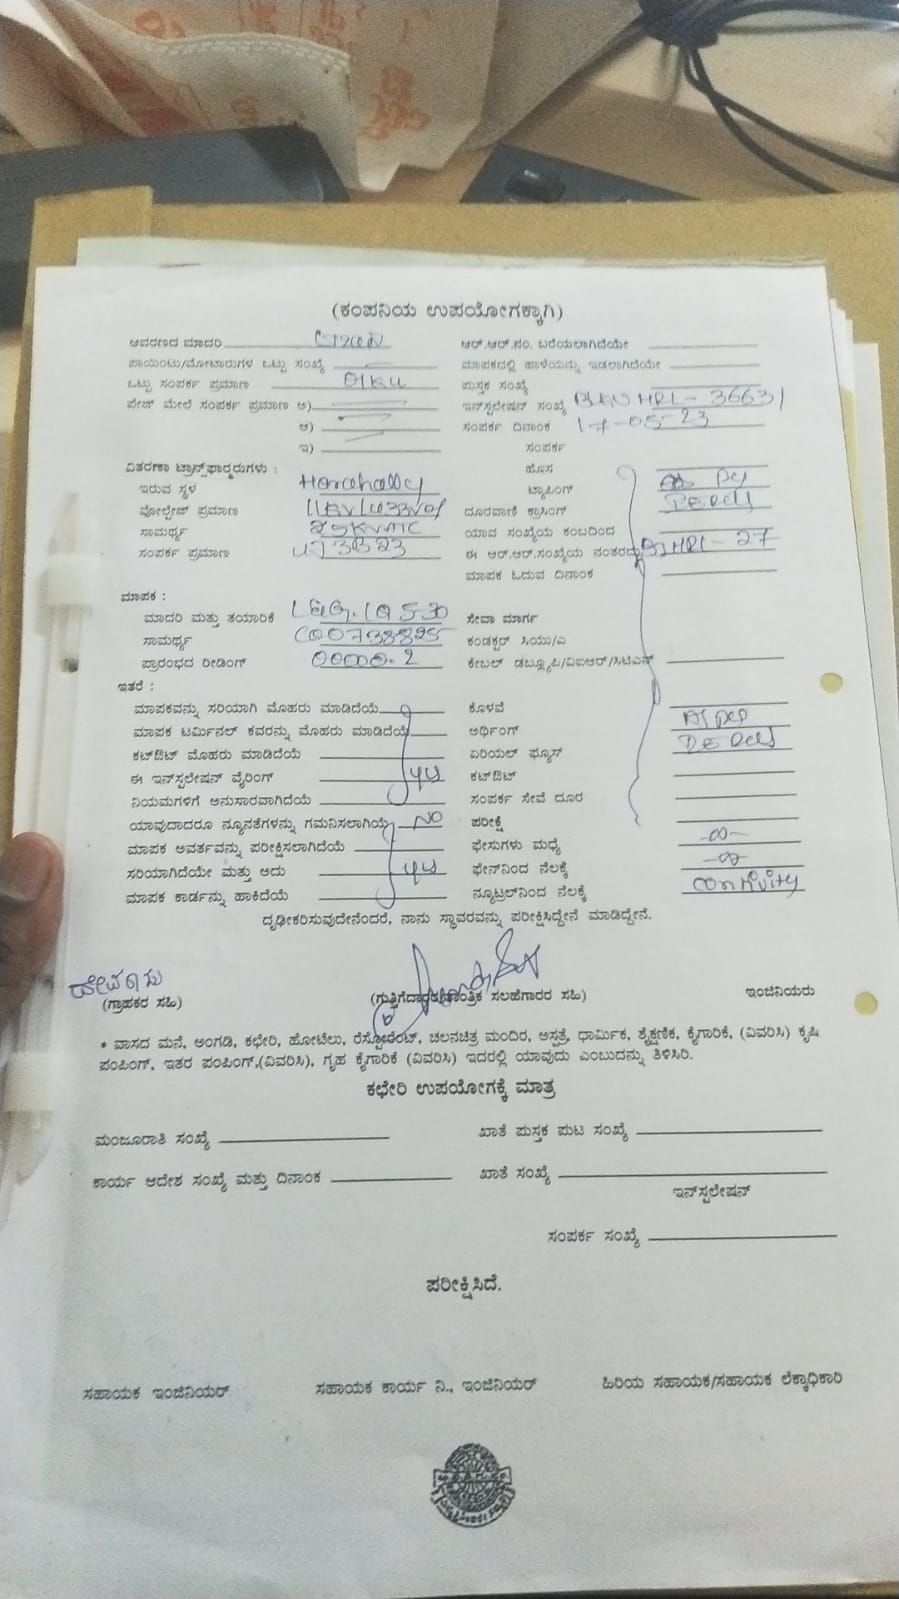 (ಕಂಪನಿಯ ಉಪಯೋಗಕ್ಕಾಗಿ)
ಆವರಣದ ಮಾದರಿ
ಆರ್.ಆರ್.ನಂ. ಬರೆಯಲಾಗಿದೆಯೇ
ಪಾಯಿಂಟು/ಮೋಟಾರುಗಳ ಒಟ್ಟು ಸಂಖ್ಯೆ
ಮಾಪಕದಲ್ಲಿ ಹಾಳೆಯನ್ನು ಇಡಲಾಗಿದೆಯೇ
ಒಟ್ಟು ಸಂಪರ್ಕ ಪ್ರಮಾಣ
ಪುಸ್ತಕ ಸಂಖ್ಯೆ
ಪೇಜ್ ಮೇಲೆ ಸಂಪರ್ಕ ಪ್ರಮಾಣ ಅ)
ಇನ್‌ಸ್ಟಲೇಷನ್ ಸಂಖ್ಯೆ 36631
ಆ)
ಸಂಪರ್ಕ ದಿನಾಂಕ 17-05-23
ಇ)
ಸಂಪರ್ಕ
ವಿತರಣಾ ಟ್ರಾನ್ಸ್‌ಫಾರ್ಮರುಗಳು :
ಹೊಸ
ಇರುವ ಸ್ಥಳ Horahally
ಟ್ಯಾಪಿಂಗ್
ವೋಲ್ಟೇಜ್ ಪ್ರಮಾಣ
ದೂರವಾಣಿ ಕ್ರಾಸಿಂಗ್
ಸಾಮರ್ಥ್ಯ 25KVA
ಯಾವ ಸಂಖ್ಯೆಯ ಕಂಬದಿಂದ
ಸಂಪರ್ಕ ಪ್ರಮಾಣ
ಈ ಆರ್.ಆರ್.ಸಂಖ್ಯೆಯ ನಂತರದ್ದು
ಮಾಪಕ ಓದುವ ದಿನಾಂಕ
ಮಾಪಕ :
ಮಾದರಿ ಮತ್ತು ತಯಾರಿಕೆ L&G.
ಸೇವಾ ಮಾರ್ಗ
ಸಾಮರ್ಥ್ಯ
ಕಂಡಕ್ಟರ್ ಸಿಯು/ಎ
ಪ್ರಾರಂಭದ ರೀಡಿಂಗ್ 00000.2
ಕೇಬಲ್ ಡಬ್ಲ್ಯೂಪಿ/ವಿಐಆರ್/ಸಿಟಿಎಸ್
ಇತರೆ :
ಮಾಪಕವನ್ನು ಸರಿಯಾಗಿ ಮೊಹರು ಮಾಡಿದೆಯೆ
ಕೊಳವೆ
ಮಾಪಕ ಟರ್ಮಿನಲ್ ಕವರನ್ನು ಮೊಹರು ಮಾಡಿದೆಯೆ
ಅರ್ಥಿಂಗ್
ಕಟ್‌ಔಟ್ ಮೊಹರು ಮಾಡಿದೆಯೆ
ಏರಿಯಲ್ ಫ್ಯೂಸ್
ಈ ಇನ್‌ಸ್ಟಲೇಷನ್ ವೈರಿಂಗ್ yes
ಕಟ್‌ಔಟ್
ನಿಯಮಗಳಿಗೆ ಅನುಸಾರವಾಗಿದೆಯೆ
ಸಂಪರ್ಕ ಸೇವೆ ದೂರ
ಯಾವುದಾದರೂ ನ್ಯೂನತೆಗಳನ್ನು ಗಮನಿಸಲಾಗಿಯೆ NO
ಪರೀಕ್ಷೆ
ಮಾಪಕ ಆವರ್ತವನ್ನು ಪರೀಕ್ಷಿಸಲಾಗಿದೆಯೆ
ಫೇಸುಗಳು ಮಧ್ಯೆ
ಸರಿಯಾಗಿದೆಯೇ ಮತ್ತು ಅದು yes
ಫೇಸ್‌ನಿಂದ ನೆಲಕ್ಕೆ
ಮಾಪಕ ಕಾರ್ಡನ್ನು ಹಾಕಿದೆಯೆ
ನ್ಯೂಟ್ರಲ್‌ನಿಂದ ನೆಲಕ್ಕೆ
ದೃಢೀಕರಿಸುವುದೇನೆಂದರೆ, ನಾನು ಸ್ಥಾವರವನ್ನು ಪರೀಕ್ಷಿಸಿದ್ದೇನೆ ಮಾಡಿದ್ದೇನೆ.
(ಗ್ರಾಹಕರ ಸಹಿ)
(ಗುತ್ತಿಗೆದಾರರ/ತಾಂತ್ರಿಕ ಸಲಹೆಗಾರರ ಸಹಿ)
ಇಂಜಿನಿಯರು
• ವಾಸದ ಮನೆ, ಅಂಗಡಿ, ಕಛೇರಿ, ಹೋಟೆಲು, ರೆಸ್ಟೋರೆಂಟ್, ಚಲನಚಿತ್ರ ಮಂದಿರ, ಆಸ್ಪತ್ರೆ, ಧಾರ್ಮಿಕ, ಶೈಕ್ಷಣಿಕ, ಕೈಗಾರಿಕೆ, (ವಿವರಿಸಿ) ಕೃಷಿ
ಪಂಪಿಂಗ್, ಇತರ ಪಂಪಿಂಗ್,(ವಿವರಿಸಿ), ಗೃಹ ಕೈಗಾರಿಕೆ (ವಿವರಿಸಿ) ಇದರಲ್ಲಿ ಯಾವುದು ಎಂಬುದನ್ನು ತಿಳಿಸಿರಿ.
ಕಛೇರಿ ಉಪಯೋಗಕ್ಕೆ ಮಾತ್ರ
ಮಂಜೂರಾತಿ ಸಂಖ್ಯೆ
ಖಾತೆ ಪುಸ್ತಕ ಪುಟ ಸಂಖ್ಯೆ
ಕಾರ್ಯ ಆದೇಶ ಸಂಖ್ಯೆ ಮತ್ತು ದಿನಾಂಕ
ಖಾತೆ ಸಂಖ್ಯೆ
ಇನ್‌ಸ್ಟಲೇಷನ್
ಸಂಪರ್ಕ ಸಂಖ್ಯೆ
ಪರೀಕ್ಷಿಸಿದೆ.
ಸಹಾಯಕ ಇಂಜಿನಿಯರ್
ಸಹಾಯಕ ಕಾರ್ಯ ನಿ., ಇಂಜಿನಿಯರ್
ಹಿರಿಯ ಸಹಾಯಕ/ಸಹಾಯಕ ಲೆಕ್ಕಾಧಿಕಾರಿ